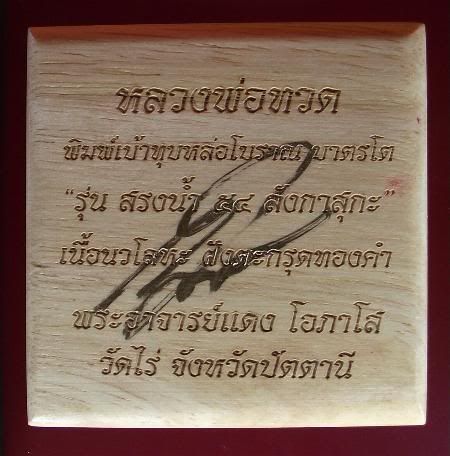 หลวงพ่อทวด
พิมพ์เบ้าทุบหล่อโบราณ บาตรโต
“รุ่น สรงน้ำ ๕๔ ลังกาสุกะ”
เนื้อนวโลหะ ฝังตะกรุดทองคำ
พระอาจารย์แดง โอภาโส
วัดไร่ จังหวัดปัตตานี